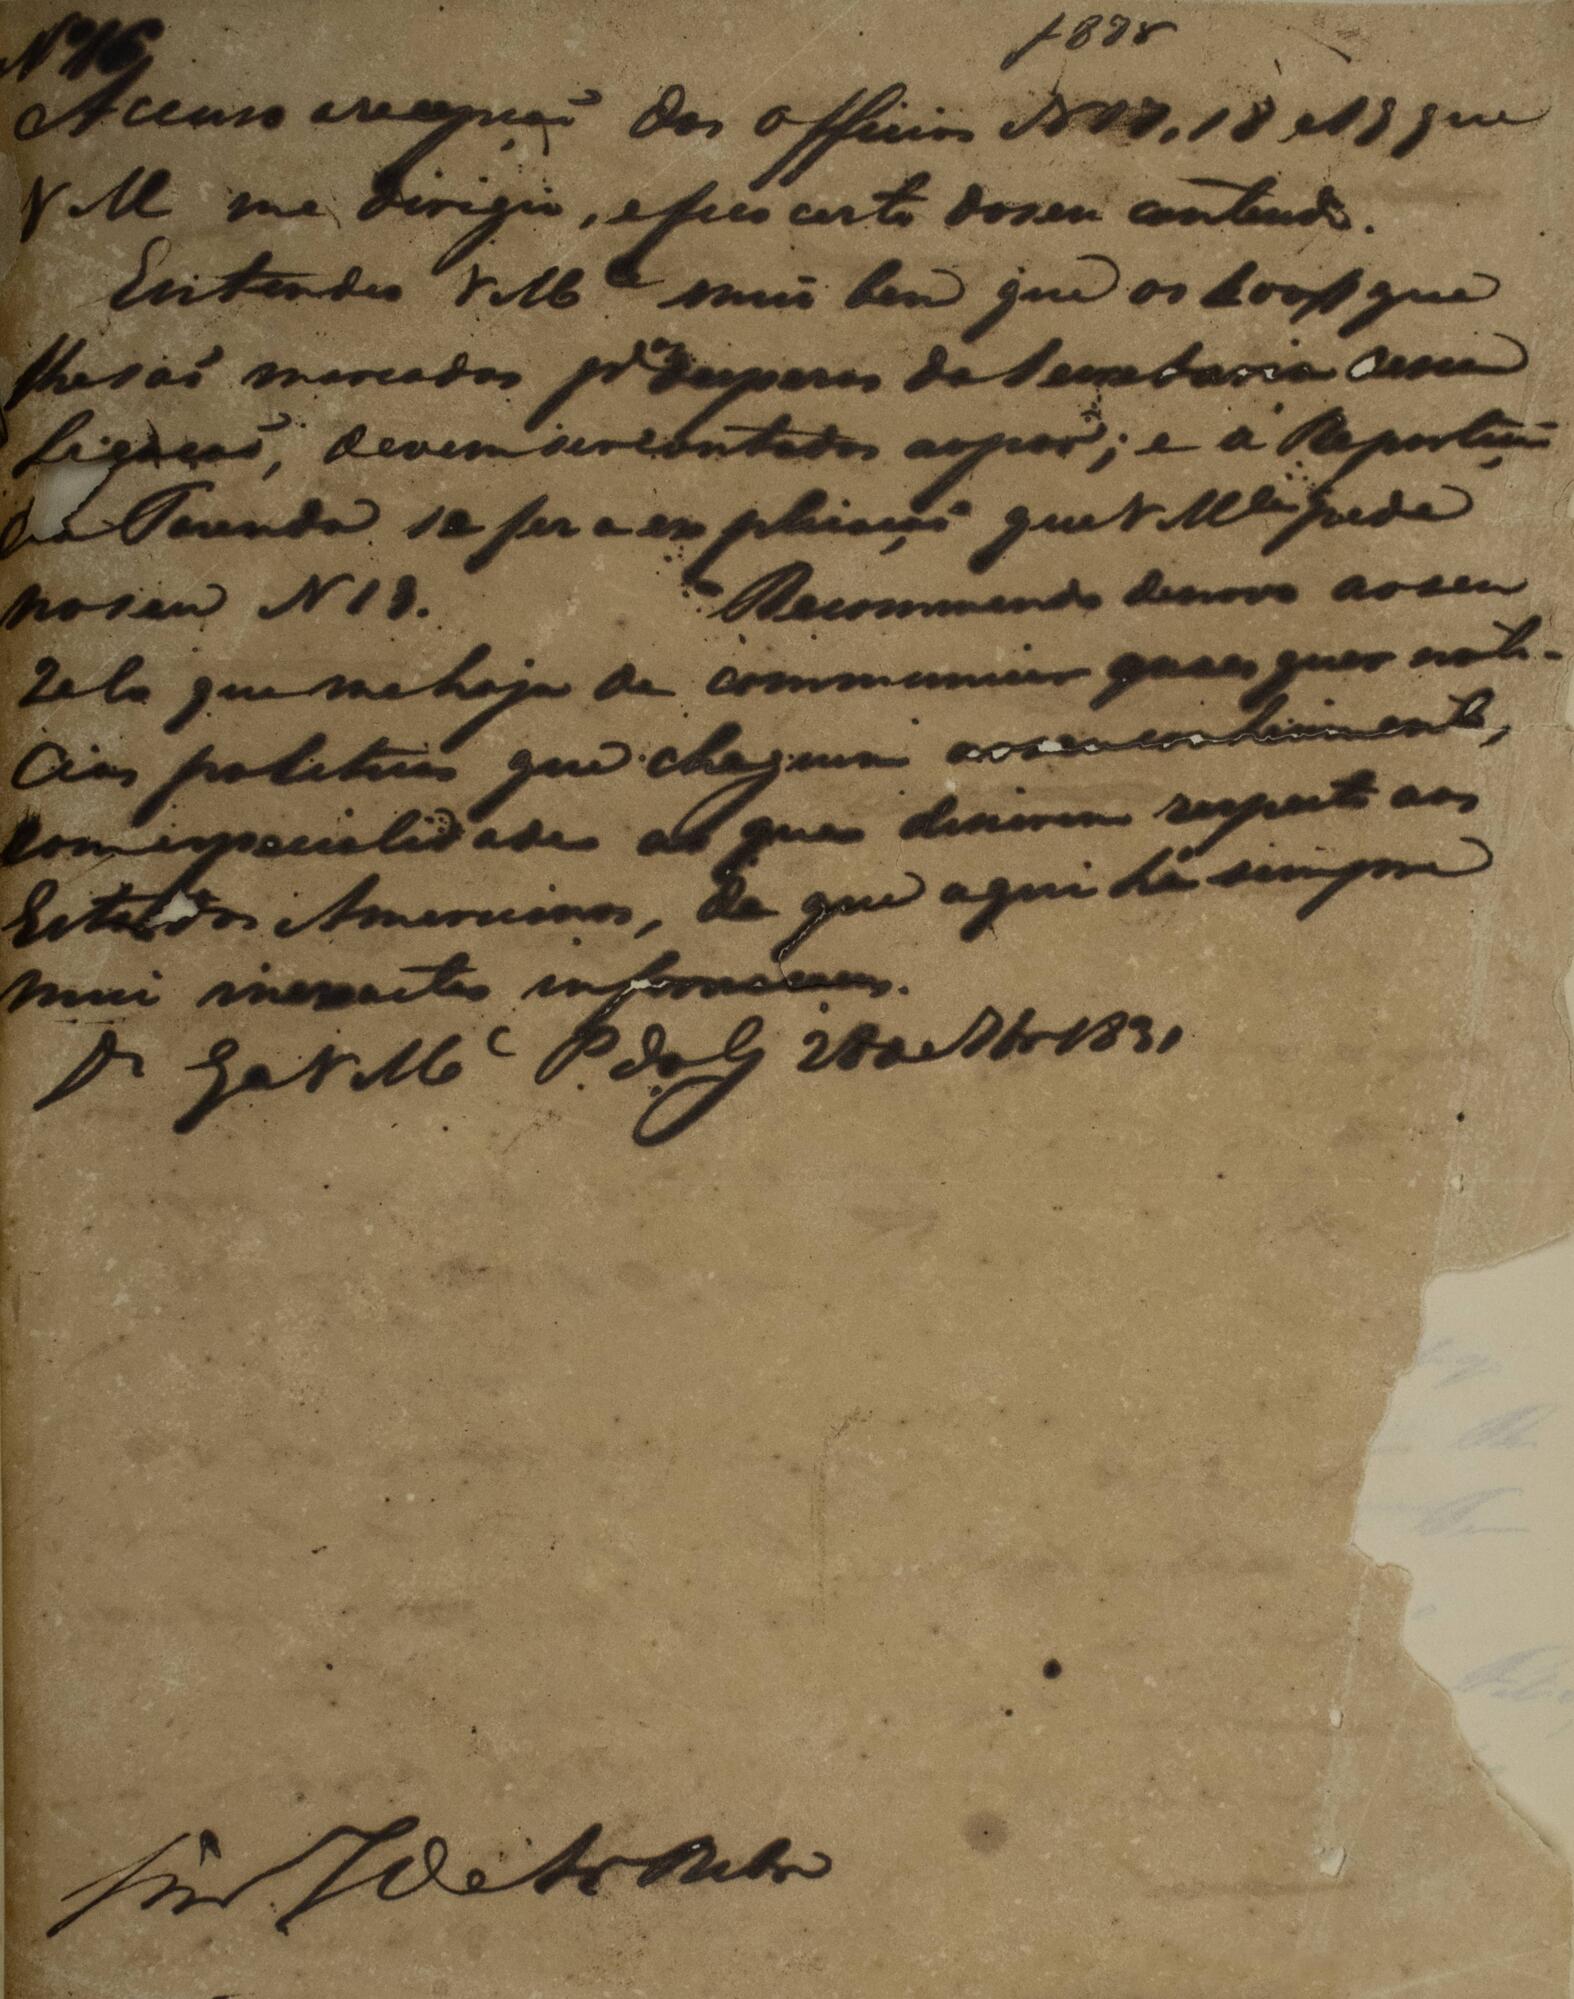 Nº 16
Accuso a recepção dos officios Nº 17, 18 e 19 que
V M me dirigio, e fico certo do seu contendo.
Entendeo V Mce mui bem que os que
lhe são marcados pa despezas da Secretaria dessa
Legação, devem ser contados ao par; e á Repartição
da Fazenda se fez a explicação que V Mce pede
no seu N 18. Recommendo de novo ao seu
zelo que me haja de communicar quaesquer noti-
cias politicas que cheguem ao seu conhecimento,
com especialidade as que disserem respeito aos
Estados Americanos, de que aqui há sempre
mui inexactas informacoens.
Ds Ge V Mce P. do G 28 de 1831
Snr